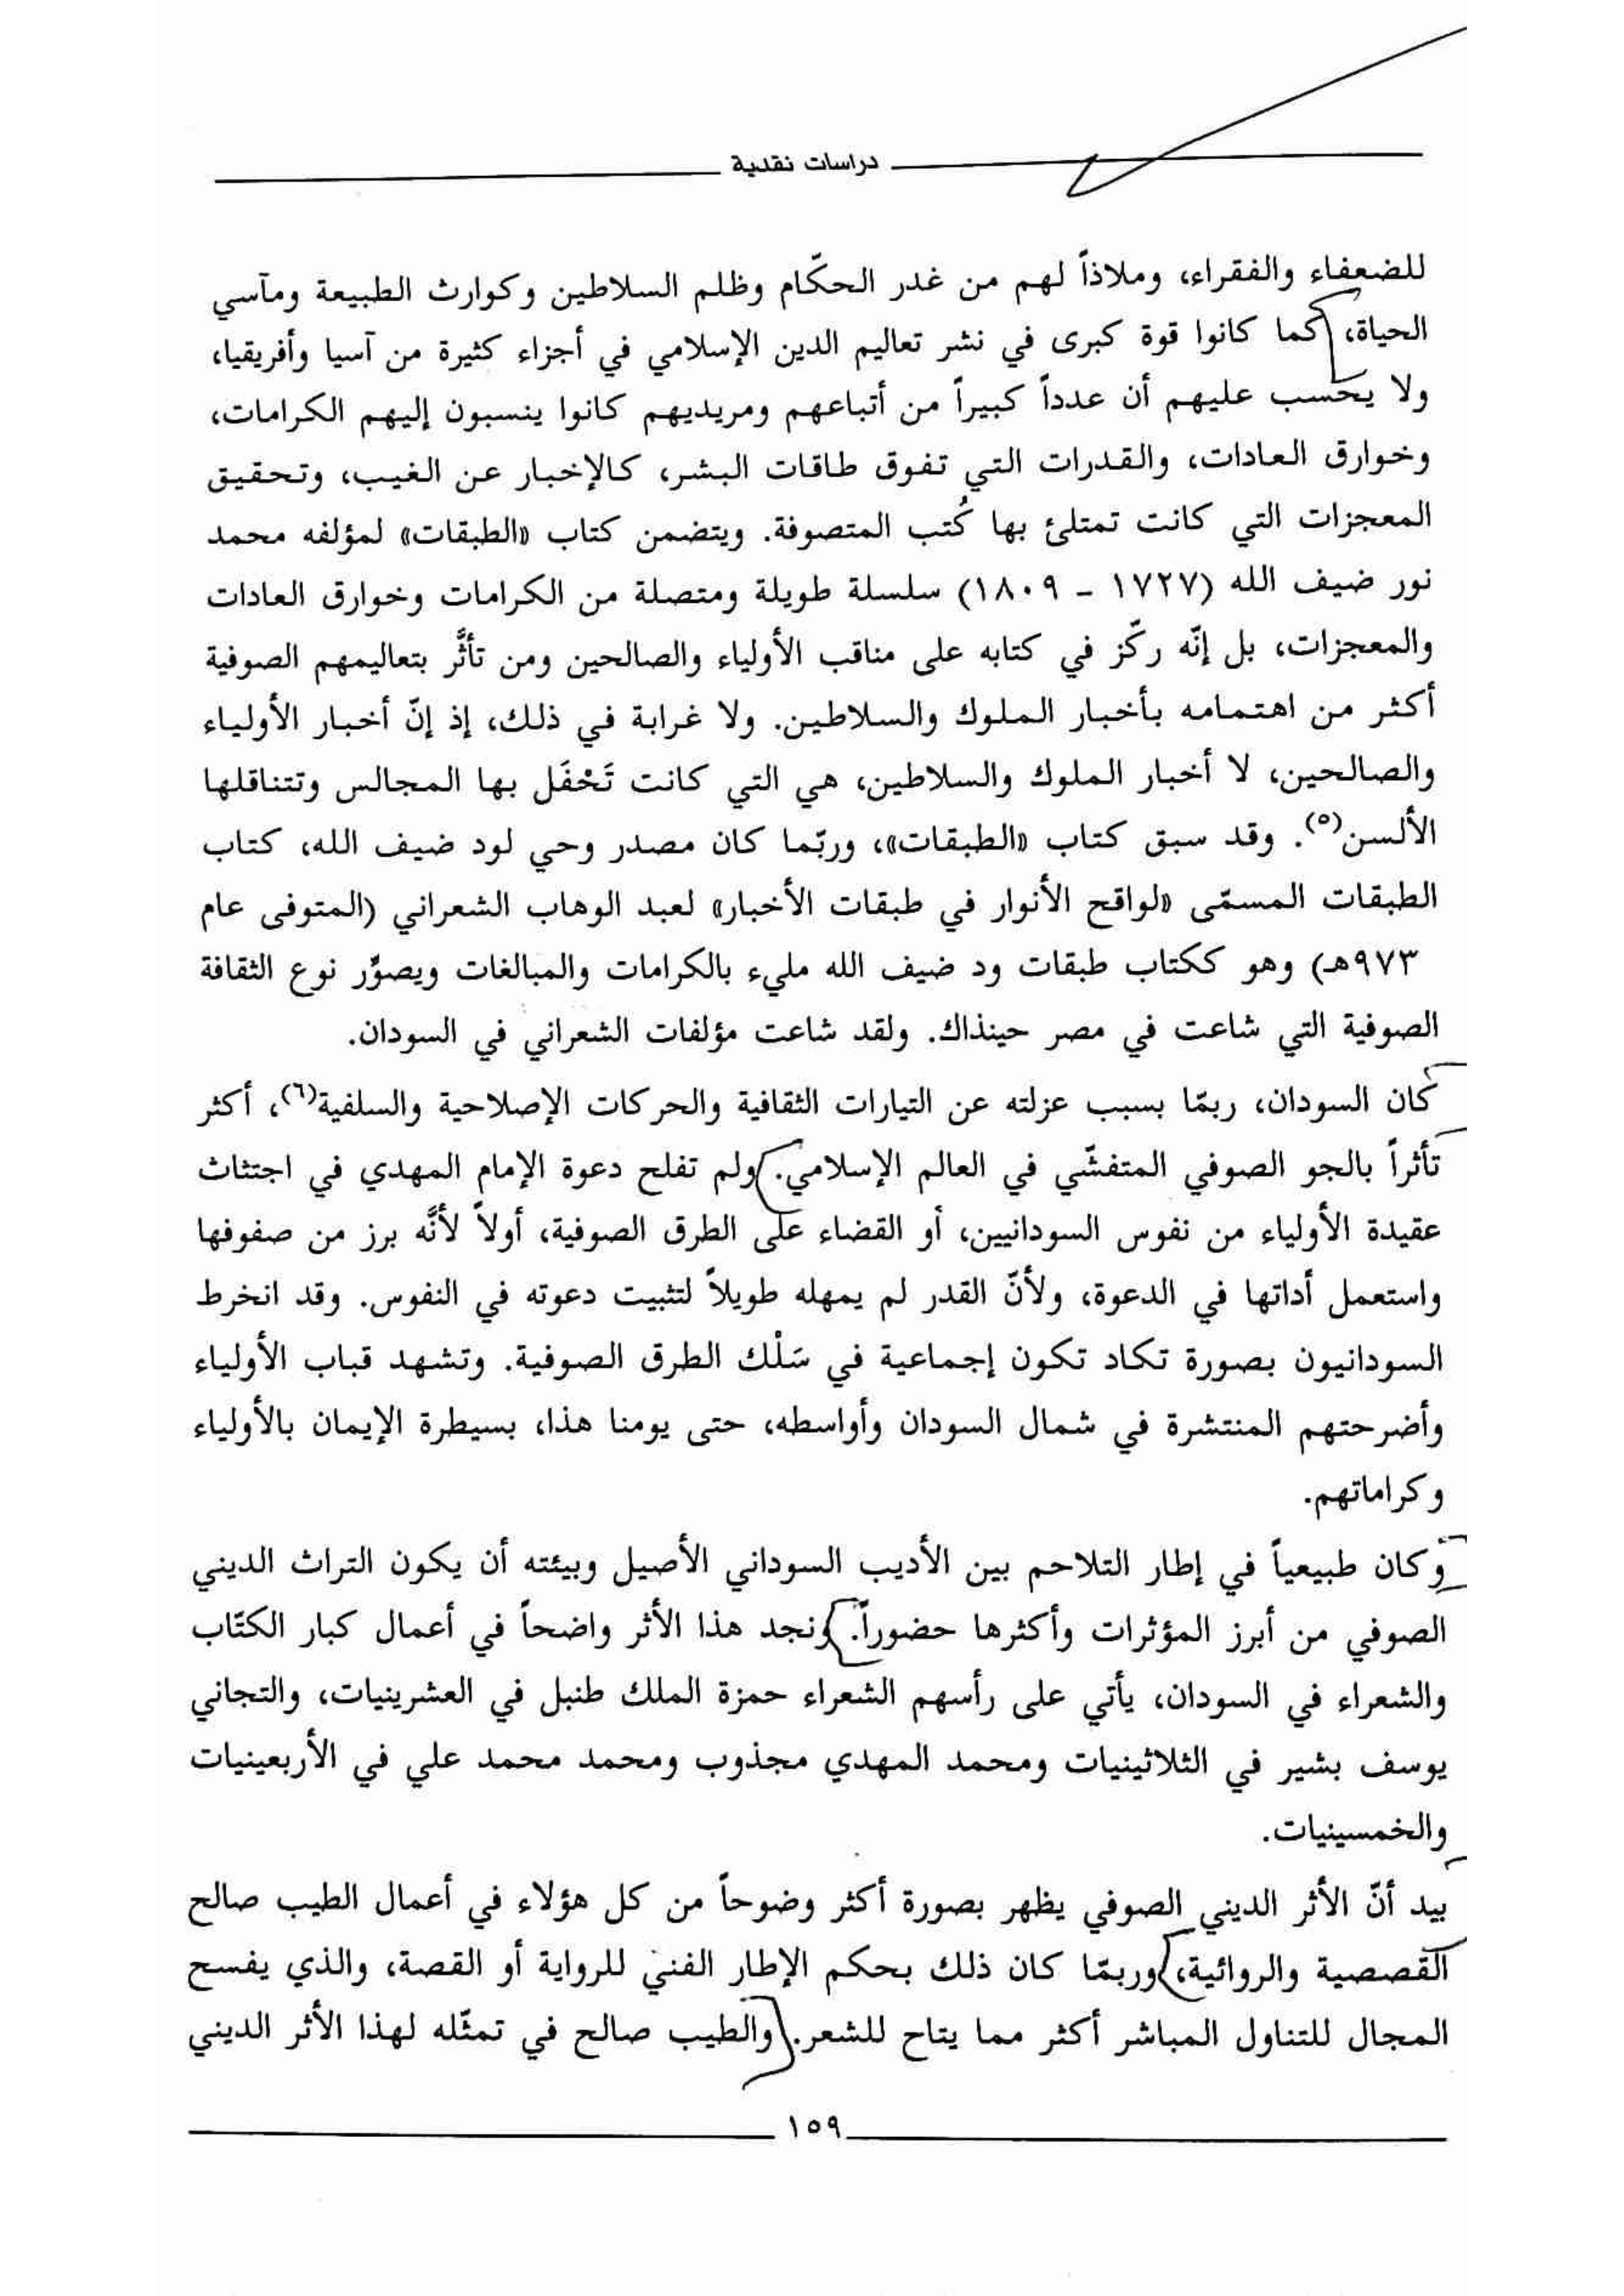 دراسات نقدية
للضعفاء والفقراء، وملاذاً لهم من غدر الحكّام وظلم السلاطين وكوارث الطبيعة ومآسي
الحياة، كما كانوا قوة كبرى في نشر تعاليم الدين الإسلامي في أجزاء كثيرة من آسيا وأفريقيا،
ولا يحسب عليهم أن عدداً كبيراً من أتباعهم ومريديهم كانوا ينسبون إليهم الكرامات،
وخوارق العادات، والقدرات التي تفوق طاقات البشر، كالإخبار عن الغيب، وتحقيق
المعجزات التي كانت تمتلئ بها كُتب المتصوفة. ويتضمن كتاب «الطبقات» لمؤلفه محمد
نور ضيف الله (١٧٢٧ - ١٨٠٩) سلسلة طويلة ومتصلة من الكرامات وخوارق العادات
والمعجزات، بل إنّه ركّز في كتابه على مناقب الأولياء والصالحين ومن تأثَّر بتعاليمهم الصوفية
أكثر من اهتمامه بأخبار الملوك والسلاطين. ولا غرابة في ذلك، إذ إنّ أخبار الأولياء
والصالحين، لا أخبار الملوك والسلاطين، هي التي كانت تَحْفَل بها المجالس وتتناقلها
الألسن(٥). وقد سبق كتاب «الطبقات»، وربّما كان مصدر وحي لود ضيف الله، كتاب
الطبقات المسمّى «لواقح الأنوار في طبقات الأخبار» لعبد الوهاب الشعراني (المتوفى عام
٩٧٣هـ) وهو ككتاب طبقات ود ضيف الله مليء بالكرامات والمبالغات ويصوِّر نوع الثقافة
الصوفية التي شاعت في مصر حينذاك. ولقد شاعت مؤلفات الشعراني في السودان.
كان السودان، ربمّا بسبب عزلته عن التيارات الثقافية والحركات الإصلاحية والسلفية(٦)، أكثر
تأثراً بالجو الصوفي المتفشّي في العالم الإسلامي. ولم تفلح دعوة الإمام المهدي في اجتثاث
عقيدة الأولياء من نفوس السودانيين، أو القضاء على الطرق الصوفية، أولاً لأنَّه برز من صفوفها
واستعمل أداتها في الدعوة، ولأنّ القدر لم يمهله طويلاً لتثبيت دعوته في النفوس. وقد انخرط
السودانيون بصورة تكاد تكون إجماعية في سَلْك الطرق الصوفية. وتشهد قباب الأولياء
وأضرحتهم المنتشرة في شمال السودان وأواسطه، حتى يومنا هذا، بسيطرة الإيمان بالأولياء
وكراماتهم.
وكان طبيعياً في إطار التلاحم بين الأديب السوداني الأصيل وبيئته أن يكون التراث الديني
الصوفي من أبرز المؤثرات وأكثرها حضوراً. ونجد هذا الأثر واضحاً في أعمال كبار الكتّاب
والشعراء في السودان، يأتي على رأسهم الشعراء حمزة الملك طنبل في العشرينيات، والتجاني
يوسف بشير في الثلاثينيات ومحمد المهدي مجذوب ومحمد محمد علي في الأربعينيات
والخمسينيات.
بيد أنّ الأثر الديني الصوفي يظهر بصورة أكثر وضوحاً من كل هؤلاء في أعمال الطيب صالح
القصصية والروائية، وربمّا كان ذلك بحكم الإطار الفني للرواية أو القصة، والذي يفسح
المجال للتناول المباشر أكثر مما يتاح للشعر. والطيب صالح في تمثّله لهذا الأثر الديني
١٥٩